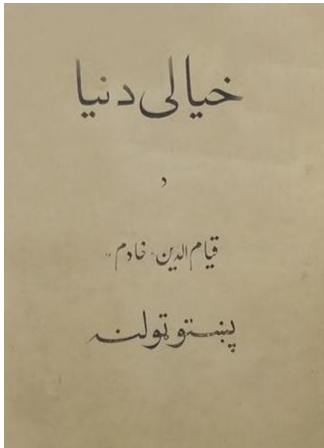 خیالی دنیا
د
قیام الدین «خادم»
پښتو ټولنه